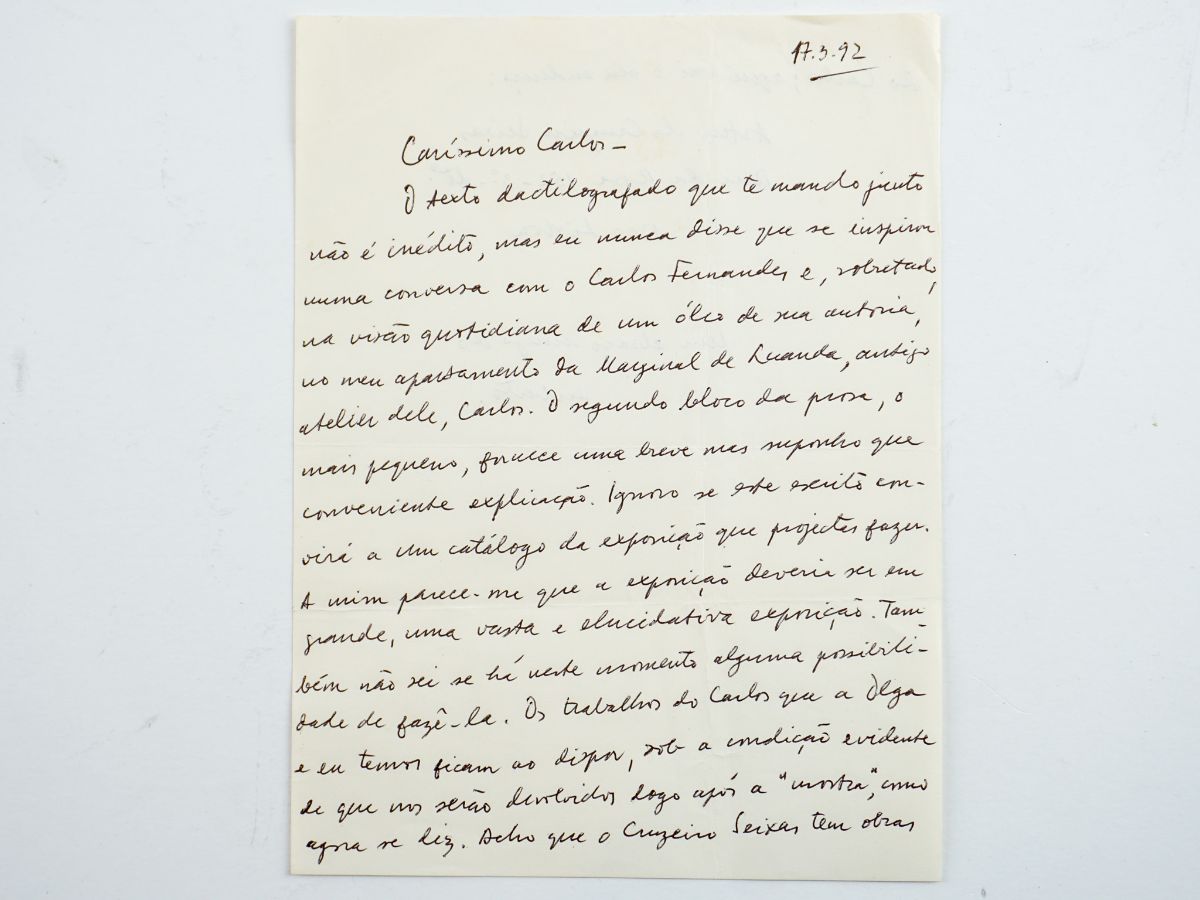 17.3.92
Caríssimo Carlos –
O texto dactilografado que te mando junto
não é inédito, mas eu nunca disse que se inspirou
numa conversa com o Carlos Fernandes e, sobretudo,
na visão quotidiana de um óleo de sua autoria,
no meu apartamento da Marginal de Luanda, antigo
atelier dele, Carlos. O segundo bloco da prosa, o
mais pequeno, fornece uma breve mas suponho que
conveniente explicação. Ignoro se este escrito con-
virá a um catálogo da exposição que projectas fazer.
A mim parece-me que a exposição deveria ser em
grande, uma vasta e elucidativa exposição. Tam-
bém não sei se há neste momento alguma possibili-
dade de fazê-la. Os trabalhos do Carlos que a Olga
e eu temos ficam ao dispor, sob a condição evidente
de que nos serão devolvidos logo após a "mostra", como
agora se diz. Acho que o Cruzeiro Seixas tem obras